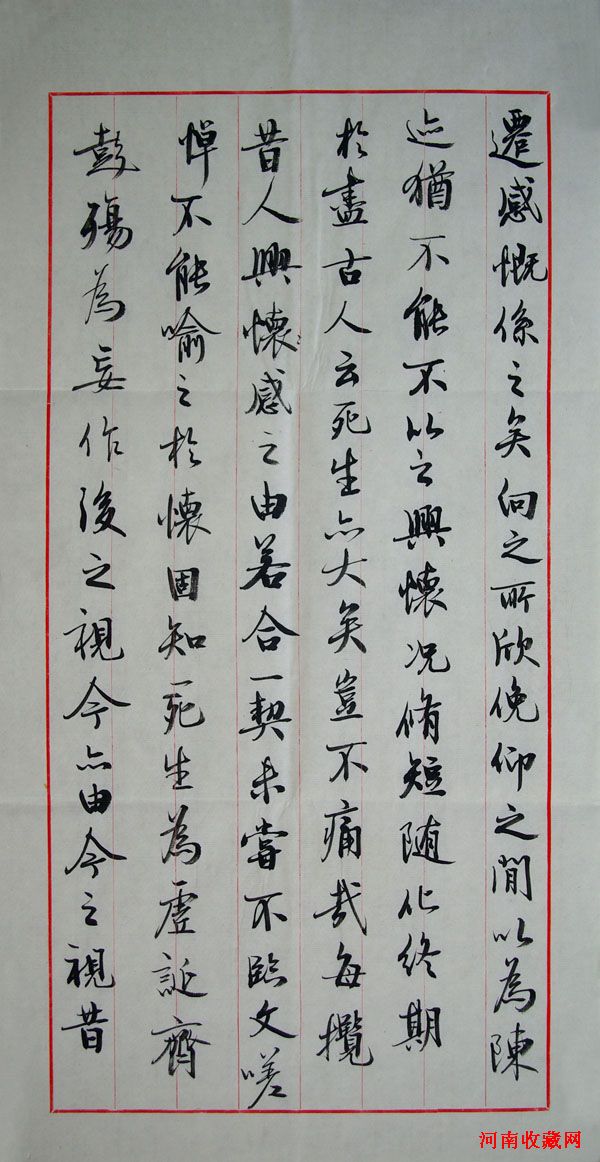 遷感慨係之矣向之所欣俛仰之閒以為陳
迹猶不能不以之興懷况脩短随化终期
於盡古人云死生亦大矣豈不痛哉每攬
昔人興懷感之由若合一契未嘗不臨文嗟
悼不能喻之於懷固知死生為虛誕齊
彭殤為妄作後之視今亦由今之視昔
河南收藏网